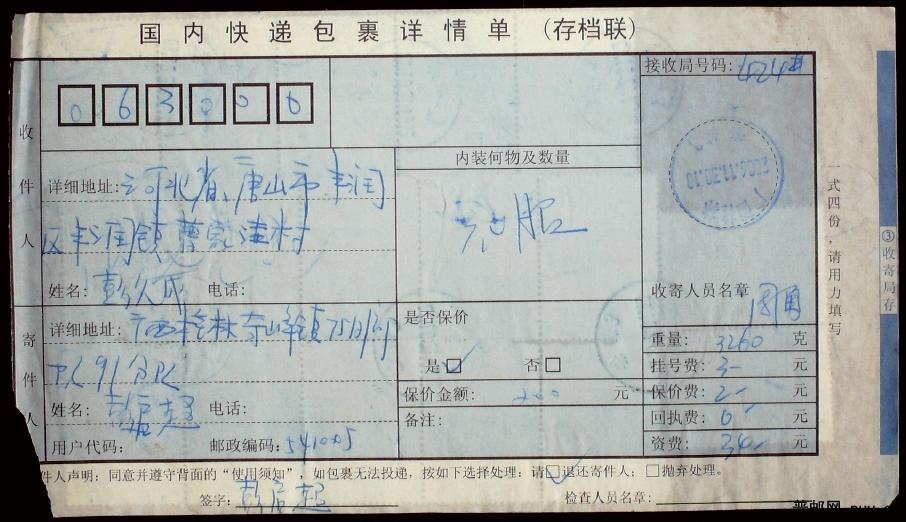 国内快递包裹详情单 (存档联)
接收局号码: 424
063000
收件人
内装何物及数量
详细地址: 河北省唐山市丰润
区丰润镇曹家洼村
衣服
姓名: 彭久成 电话:
收寄人员名章 周勇
寄件人
详细地址: 广西桂林
91分队
姓名: 彭启超 电话:
用户代码: 邮政编码: 541005
是否保价
是□ 否□
保价金额: 200 元
备注:
重量: 3260 克
挂号费: 3- 元
保价费: 2- 元
回执费: 元
资费: 元
件人声明: 同意并遵守背面的“使用须知”, 如包裹无法投递, 按如下选择处理: 请□退还寄件人; □抛弃处理。
签字: 彭启超 检查人员名章:
一式四份, 请用力填写
③收寄局存
普邮网